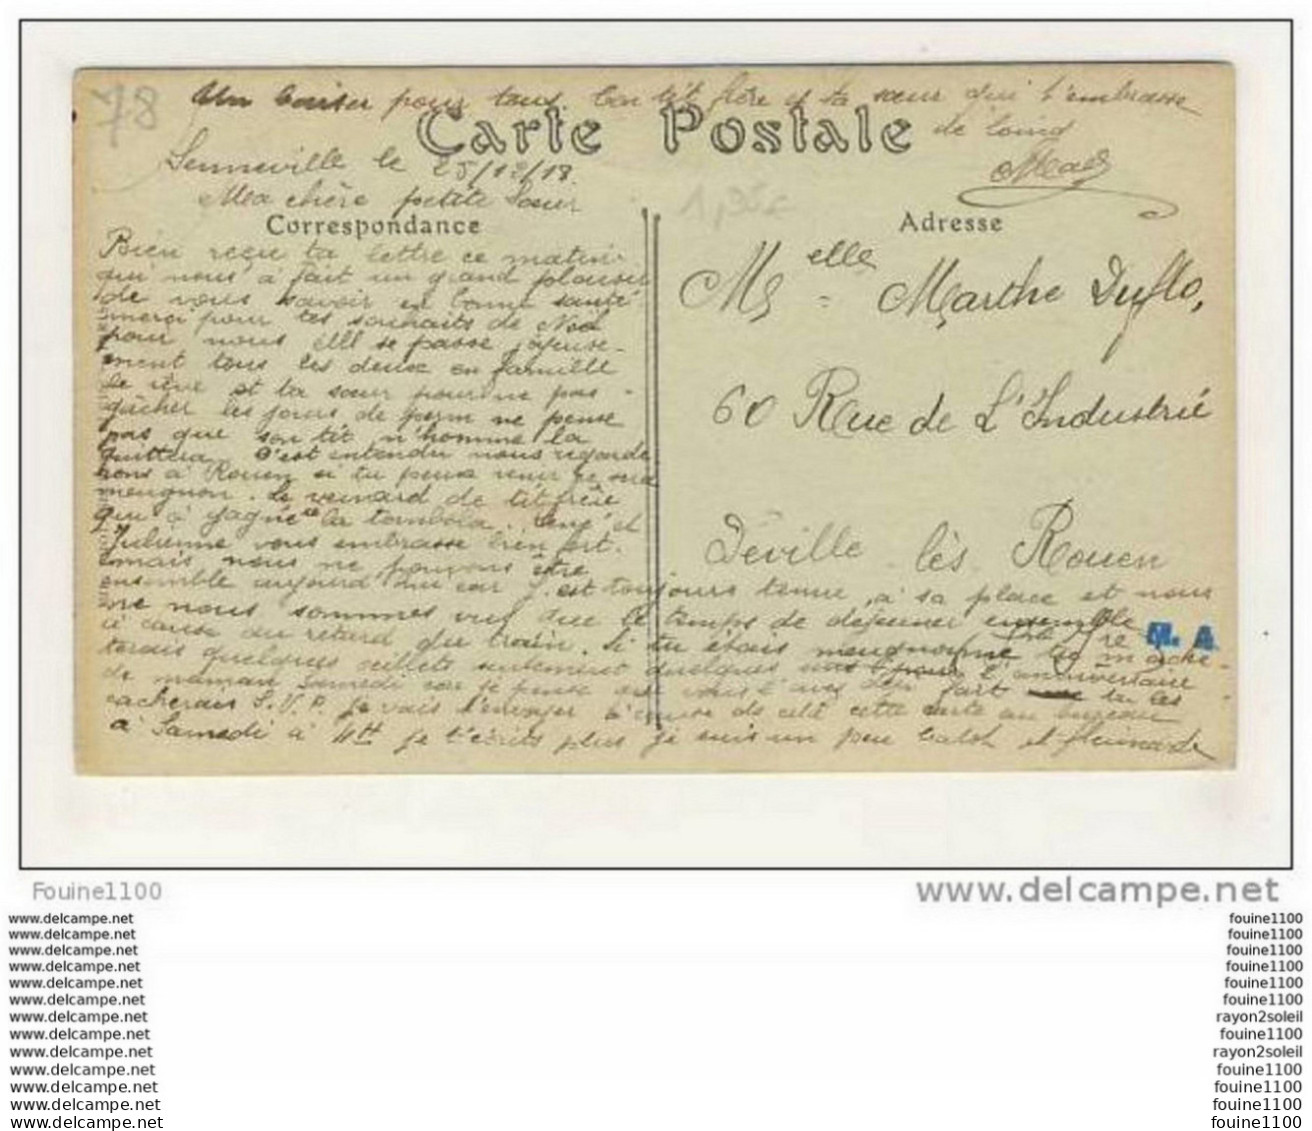 78
Un baiser pour tous. ton tit frère et ta sœur qui t'embrasse
de loin
Carte Postale
Senneville le 25/12/18
Ma chère petite Sœur
1,35€
Correspondance
Adresse
Bien reçu ta lettre ce matin
qui nous a fait un grand plaisir
de vous savoir en bonne santé
merci pour tes souhaits de Noel
pour nous Elle se passe joyeuse-
ment tous les deux en famille
le rêve et ta sœur pour ne pas
gâcher les jours de perm ne pense
pas que son tit n'homme la
quittera C'est entendu nous regarde
rons à Rouen si tu peux venir ce sera
meugnon. Le veinard de tit frère
qui a gagné la tombola. et
Julienne vous embrasse bien fort.
mais nous ne pouvons être
ensemble aujourd'hui car J. est toujours tenue à sa place et nous
ne nous sommes vus que le temps de déjeuner ensemble
à cause du retard du train. Si tu étais meugnonne tu m'ache-
terais quelques œillets seulement quelques pour l'anniversaire
de maman Samedi car je pense que vous l'avez déjà fait tu les
cacherais S.V.P. Je vais l'envoyer à cause de cela cette carte au bureau
à Samedi à 4h je t'écris plus je suis un peu et
Melle Marthe Duflo,
60 Rue de L'Industrie
Déville lès Rouen
M. A.
Fouine1100
www.delcampe.net
www.delcampe.net
fouine1100
www.delcampe.net
fouine1100
www.delcampe.net
fouine1100
www.delcampe.net
fouine1100
www.delcampe.net
fouine1100
www.delcampe.net
fouine1100
www.delcampe.net
rayon2soleil
www.delcampe.net
fouine1100
www.delcampe.net
rayon2soleil
www.delcampe.net
fouine1100
www.delcampe.net
fouine1100
www.delcampe.net
fouine1100
www.delcampe.net
fouine1100